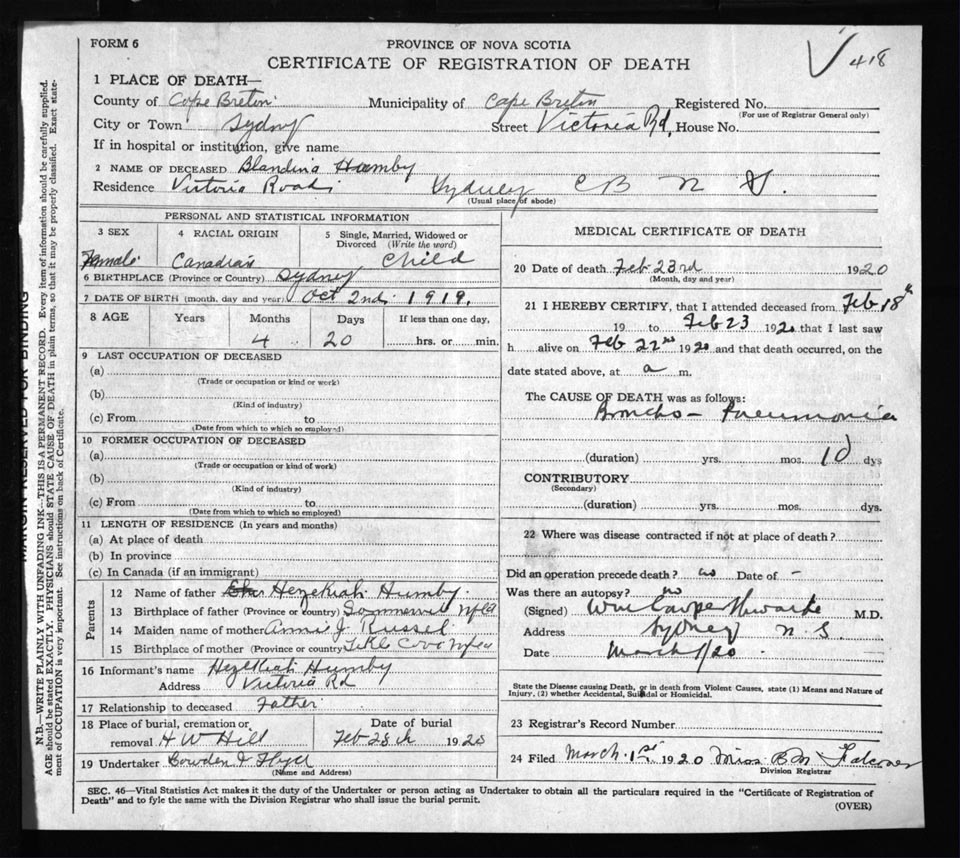 FORM 6
PROVINCE OF NOVA SCOTIA
418
CERTIFICATE OF REGISTRATION OF DEATH
1 PLACE OF DEATH—
County of Cape Breton Municipality of Cape Breton Registered No.
(For use of Registrar General only)
City or Town Sydney Street Victoria Rd, House No.
If in hospital or institution, give name
2 NAME OF DECEASED Blandina Humby
Residence Victoria Road Sydney C B N S.
(Usual place of abode)
PERSONAL AND STATISTICAL INFORMATION
3 SEX 4 RACIAL ORIGIN 5 Single, Married, Widowed or Divorced (Write the word)
Female Canadian Child
6 BIRTHPLACE (Province or Country) Sydney
7 DATE OF BIRTH (month, day and year) Oct 2nd 1919.
8 AGE Years Months Days If less than one day,
4 20 hrs. or min.
9 LAST OCCUPATION OF DECEASED
(a)
(Trade or occupation or kind or work)
(b)
(Kind of industry)
(c) From to
(Date from which to which so employed)
10 FORMER OCCUPATION OF DECEASED
(a)
(Trade or occupation or kind of work)
(b)
(Kind of industry)
(c) From to
(Date from which to which so employed)
11 LENGTH OF RESIDENCE (In years and months)
(a) At place of death
(b) In province
(c) In Canada (if an immigrant)
Parents
12 Name of father Hezekiah Humby
13 Birthplace of father (Province or country) Nfld
14 Maiden name of mother Annie J. Russel
15 Birthplace of mother (Province or country) Cove Nfld
16 Informant's name Hezekiah Humby
Address Victoria Rd
17 Relationship to deceased Father
18 Place of burial, cremation or removal H W Hill
Date of burial Feb 28th 1920
19 Undertaker Bowden & Floyd
(Name and Address)
MEDICAL CERTIFICATE OF DEATH
20 Date of death Feb 23rd 1920
(Month, day and year)
21 I HEREBY CERTIFY, that I attended deceased from Feb 18th
19 to Feb 23 1920 that I last saw
h alive on Feb 22nd 1920 and that death occurred, on the
date stated above, at a m.
The CAUSE OF DEATH was as follows:
Broncho-Pneumonia
(duration) yrs. mos. 10 dys
CONTRIBUTORY
(Secondary)
(duration) yrs. mos. dys.
22 Where was disease contracted if not at place of death?
Did an operation precede death? no Date of –
Was there an autopsy? no
(Signed) M.D.
Address Sydney N.S.
Date March 1/20
State the Disease causing Death, or in death from Violent Causes, state (1) Means and Nature of
Injury, (2) whether Accidental, Suicidal or Homicidal.
23 Registrar's Record Number
24 Filed March. 1st 1920 Miss B M Falconer
Division Registrar
SEC. 46—Vital Statistics Act makes it the duty of the Undertaker or person acting as Undertaker to obtain all the particulars required in the "Certificate of Registration of
Death" and to fyle the same with the Division Registrar who shall issue the burial permit.
(OVER)
MARGIN RESERVED FOR BINDING
N.B.—WRITE PLAINLY WITH UNFADING INK—THIS IS A PERMANENT RECORD. Every item of information should be carefully supplied.
AGE should be stated EXACTLY. PHYSICIANS should STATE CAUSE OF DEATH in plain terms, so that it may be properly classified. Exact state-
ment of OCCUPATION is very important. See instructions on back of Certificate.